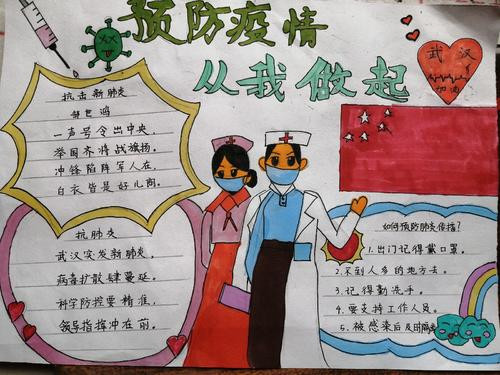 预防疫情
从我做起
武汉
加油
抗击新肺炎
一声号令出中央,
举国齐将战旗扬。
冲锋陷阵军人在,
白衣皆是好儿商。
抗肺炎
武汉突发新肺炎,
病毒扩散肆蔓延。
科学防控要精准,
领导指挥冲在前。
如何预防肺炎传播?
1.出门记得戴口罩。
2.不到人多的地方去。
3.记得勤洗手。
4.要支持工作人员。
5.被感染后及时